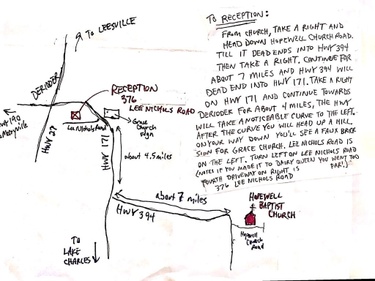 TO LEESVILLE
DERIDDER
HWY 190
Merryville
HWY 27
Lee Nichols Road
RECEPTION
376
LEE NICHOLS ROAD
Grace
Church
Sign
HWY 171
about 4.5 miles
about 7 miles
HWY 394
TO
LAKE
CHARLES
HOPEWELL
BAPTIST
CHURCH
Hopewell
Church
Road
TO RECEPTION:
FROM CHURCH, TAKE A RIGHT AND
HEAD DOWN HOPEWELL CHURCH ROAD.
TILL IT DEAD ENDS INTO HWY 394
THEN TAKE A RIGHT. CONTINUE FOR
ABOUT 7 MILES AND HWY 394 WILL
DEAD END INTO HWY 171. TAKE A RIGHT
ON HWY 171 AND CONTINUE TOWARDS
DERIDDER FOR ABOUT 4 MILES, THE HWY
WILL TAKE A NOTICABLE CURVE TO THE LEFT.
AFTER THE CURVE YOU WILL HEAD UP A HILL.
ON YOUR WAY DOWN YOU'LL SEE A FAUX BRICK
SIGN FOR GRACE CHURCH. LEE NICHOLS ROAD IS
ON THE LEFT. TURN LEFT ON LEE NICHOLS ROAD
(NOTE: IF YOU MADE IT TO DAIRY QUEEN YOU WENT TOO
FOURTH DRIVEWAY ON RIGHT IS FAR!)
376 LEE NICHOLS ROAD